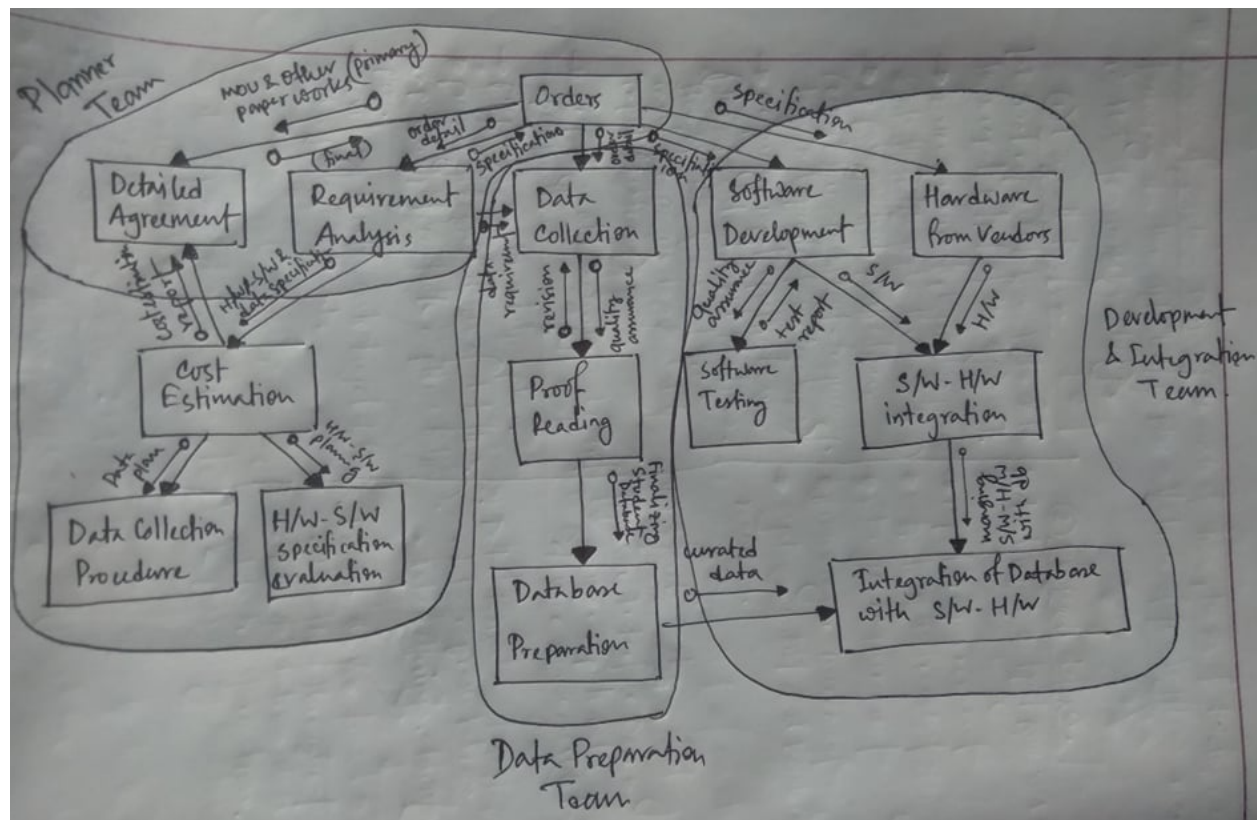 Planner
Team
MOU & other (primary)
paper works
(final)
Orders
order
detail
specifications
order
detail
specification
Detailed
Agreement
Requirement
Analysis
Data
Collection
Software
Development
Hardware
from Vendors
cost estimat
report
H/W-S/W &
data specification
data
requirem
revision
quality
assurance
quality
assurance
test
report
S/W
H/W
Development
& Integration
Team
Cost
Estimation
Proof
Reading
Software
Testing
S/W-H/W
integration
Data
plan
H/W-S/W
planning
Finalizing
Student
Database
Data Collection
Procedure
H/W-S/W
specification
evaluation
Database
Preparation
curated
data
Integration of Database
with S/W-H/W
Data Preparation
Team